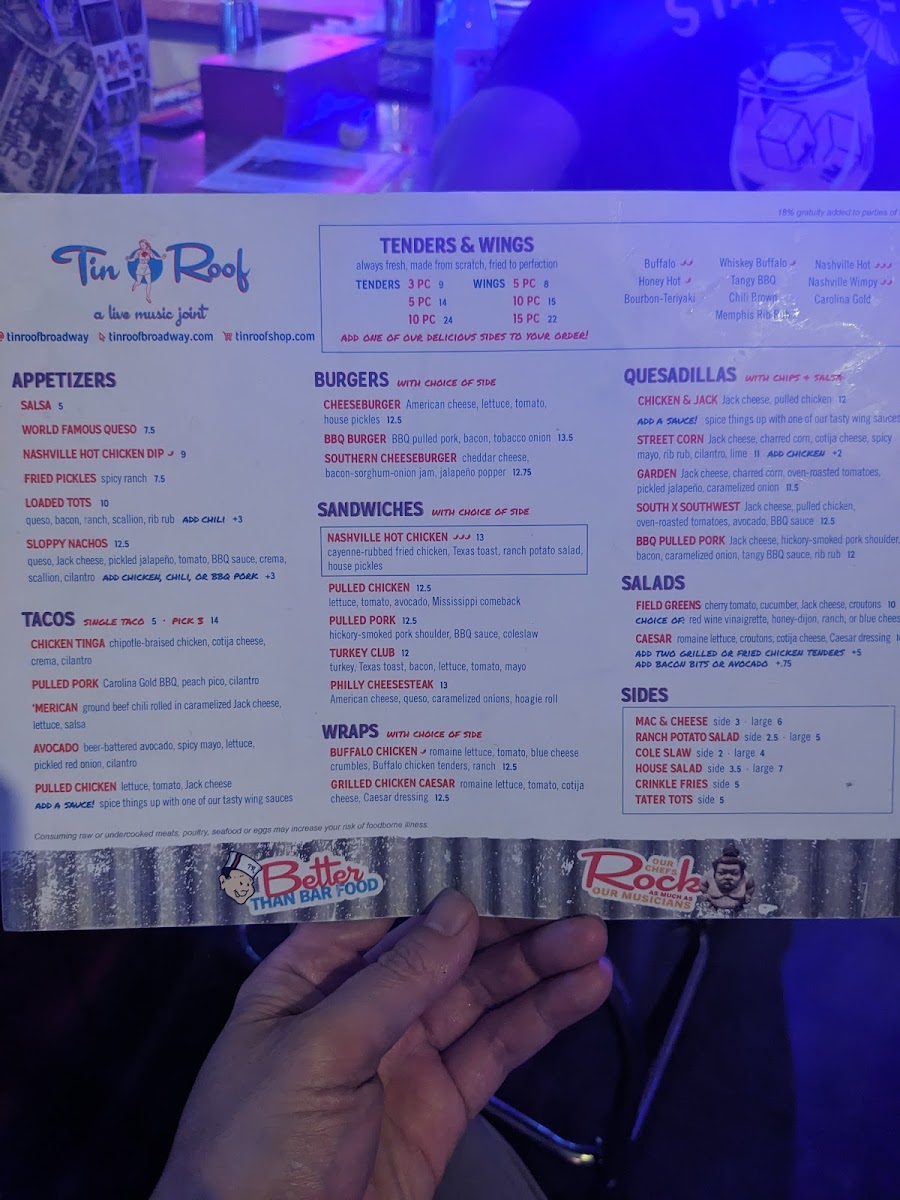 STA
18% gratuity added to parties of
Tin Roof
a live music joint
tinroofbroadway tinroofbroadway.com tinroofshop.com
TENDERS & WINGS
always fresh, made from scratch, fried to perfection
TENDERS 3 PC 9 WINGS 5 PC 8
5 PC 14 10 PC 15
10 PC 24 15 PC 22
ADD ONE OF OUR DELICIOUS SIDES TO YOUR ORDER!
Buffalo Whiskey Buffalo Nashville Hot
Honey Hot Tangy BBQ Nashville Wimpy
Bourbon-Teriyaki Chili Brown Carolina Gold
Memphis Rib Rub
APPETIZERS
SALSA 5
WORLD FAMOUS QUESO 7.5
NASHVILLE HOT CHICKEN DIP 9
FRIED PICKLES spicy ranch 7.5
LOADED TOTS 10
queso, bacon, ranch, scallion, rib rub ADD CHILI +3
SLOPPY NACHOS 12.5
queso, Jack cheese, pickled jalapeño, tomato, BBQ sauce, crema,
scallion, cilantro ADD CHICKEN, CHILI, OR BBQ PORK +3
TACOS SINGLE TACO 5 · PICK 3 14
CHICKEN TINGA chipotle-braised chicken, cotija cheese,
crema, cilantro
PULLED PORK Carolina Gold BBQ, peach pico, cilantro
'MERICAN ground beef chili rolled in caramelized Jack cheese,
lettuce, salsa
AVOCADO beer-battered avocado, spicy mayo, lettuce,
pickled red onion, cilantro
PULLED CHICKEN lettuce, tomato, Jack cheese
ADD A SAUCE! spice things up with one of our tasty wing sauces
BURGERS WITH CHOICE OF SIDE
CHEESEBURGER American cheese, lettuce, tomato,
house pickles 12.5
BBQ BURGER BBQ pulled pork, bacon, tobacco onion 13.5
SOUTHERN CHEESEBURGER cheddar cheese,
bacon-sorghum-onion jam, jalapeño popper 12.75
SANDWICHES WITH CHOICE OF SIDE
NASHVILLE HOT CHICKEN 13
cayenne-rubbed fried chicken, Texas toast, ranch potato salad,
house pickles
PULLED CHICKEN 12.5
lettuce, tomato, avocado, Mississippi comeback
PULLED PORK 12.5
hickory-smoked pork shoulder, BBQ sauce, coleslaw
TURKEY CLUB 12
turkey, Texas toast, bacon, lettuce, tomato, mayo
PHILLY CHEESESTEAK 13
American cheese, queso, caramelized onions, hoagie roll
WRAPS WITH CHOICE OF SIDE
BUFFALO CHICKEN romaine lettuce, tomato, blue cheese
crumbles, Buffalo chicken tenders, ranch 12.5
GRILLED CHICKEN CAESAR romaine lettuce, tomato, cotija
cheese, Caesar dressing 12.5
QUESADILLAS WITH CHIPS + SALSA
CHICKEN & JACK Jack cheese, pulled chicken 12
ADD A SAUCE! spice things up with one of our tasty wing sauces
STREET CORN Jack cheese, charred corn, cotija cheese, spicy
mayo, rib rub, cilantro, lime 11 ADD CHICKEN +2
GARDEN Jack cheese, charred corn, oven-roasted tomatoes,
pickled jalapeño, caramelized onion 11.5
SOUTH X SOUTHWEST Jack cheese, pulled chicken,
oven-roasted tomatoes, avocado, BBQ sauce 12.5
BBQ PULLED PORK Jack cheese, hickory-smoked pork shoulder,
bacon, caramelized onion, tangy BBQ sauce, rib rub 12
SALADS
FIELD GREENS cherry tomato, cucumber, Jack cheese, croutons 10
CHOICE OF: red wine vinaigrette, honey-dijon, ranch, or blue chees
CAESAR romaine lettuce, croutons, cotija cheese, Caesar dressing
ADD TWO GRILLED OR FRIED CHICKEN TENDERS +5
ADD BACON BITS OR AVOCADO +.75
SIDES
MAC & CHEESE side 3 · large 6
RANCH POTATO SALAD side 2.5 · large 5
COLE SLAW side 2 · large 4
HOUSE SALAD side 3.5 · large 7
CRINKLE FRIES side 5
TATER TOTS side 5
Consuming raw or undercooked meats, poultry, seafood or eggs may increase your risk of foodborne illness.
Better
THAN BAR FOOD
OUR
CHEFS
Rock
AS MUCH AS
OUR MUSICIANS